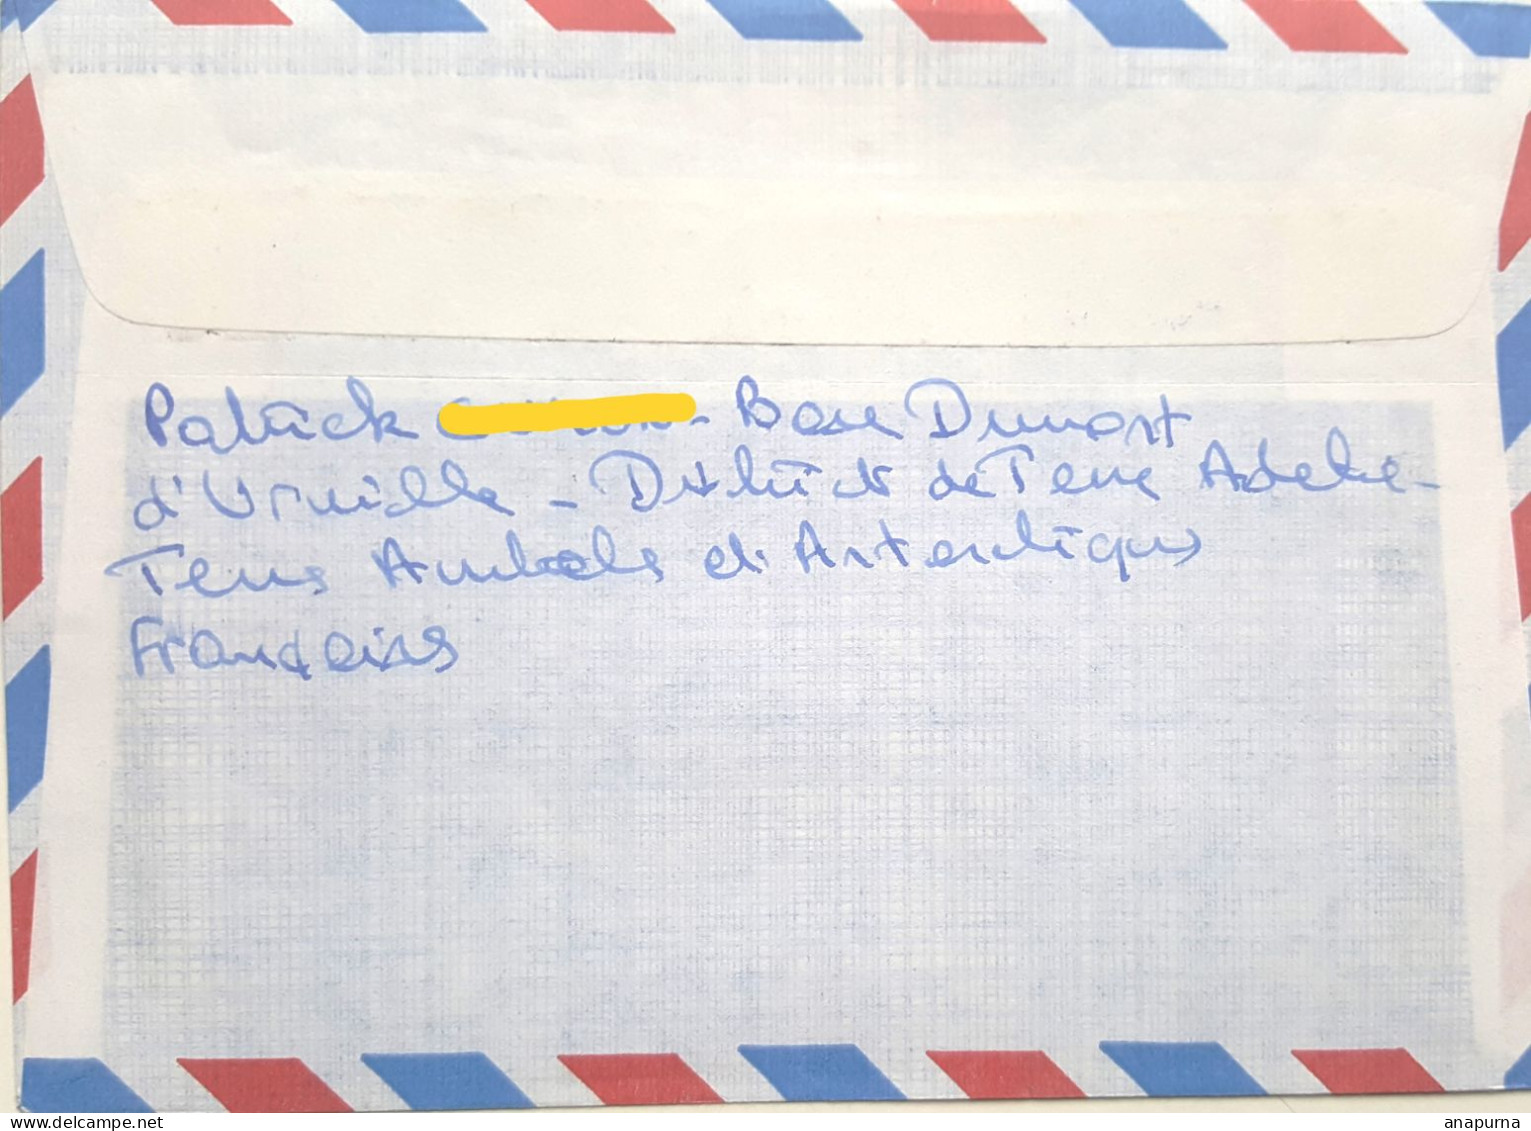 Patrick - Base Dumont
d'Urville - District de Terre Adélie -
Terres Australes et Antarctiques
Françaises
anapurna